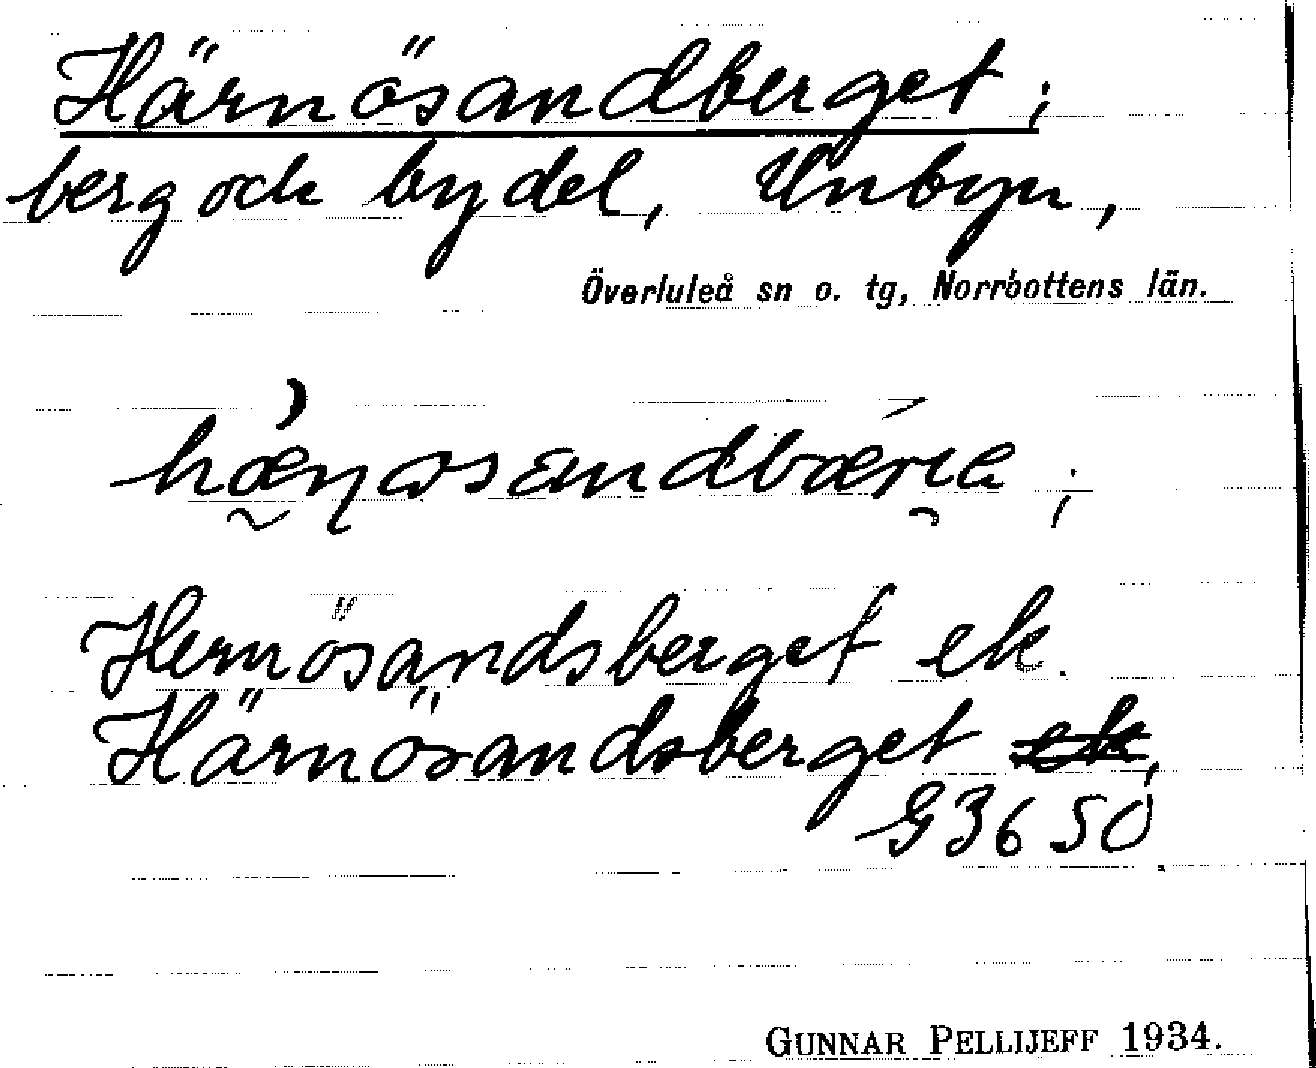 Härnösandberget;
berg och bydel, Unbyn,
Överluleå sn o. tg, Norrbottens län.
Hernösandsberget ek.
Härnösandsberget
G3650
GUNNAR PELLIJEFF 1934.